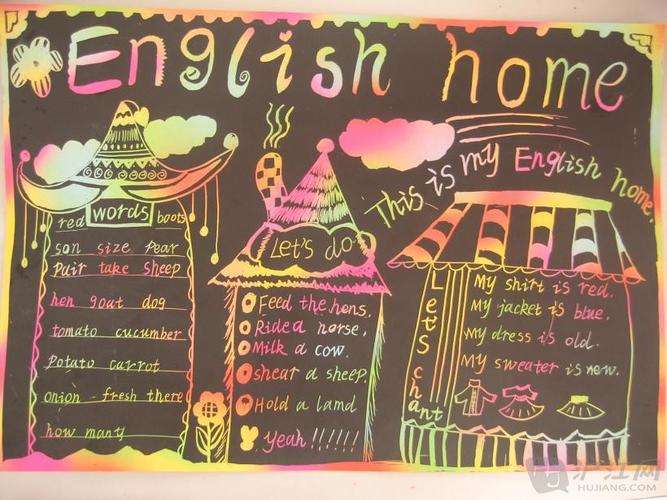 English home
This is my English home.
words
red boots
son size pear
pair take sheep
hen goat dog
tomato cucumber
Potato carrot
onion - fresh there
how many
Let's do
Feed the hens.
Ride a horse.
Milk a cow.
shear a sheep.
Hold a lamd
Yeah !!!!!!
Let's chant
My shirt is red.
My jacket is blue.
My dress is old.
My sweater is new.
沪江网
HUJIANG.COM